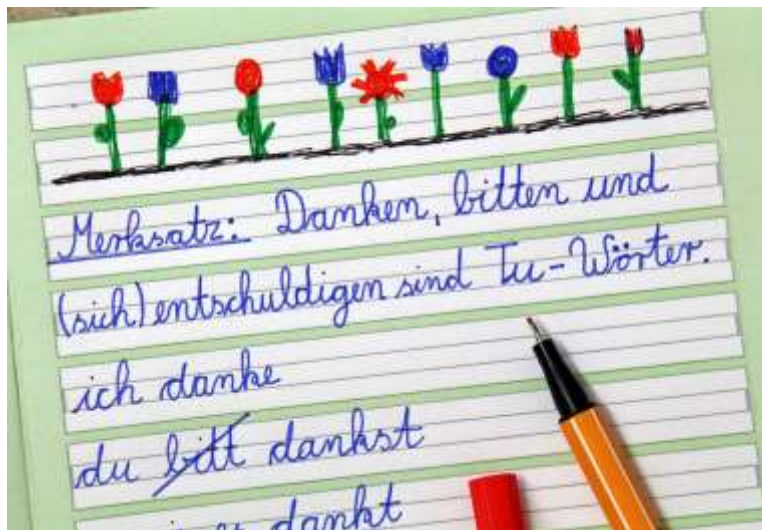 Merksatz: Danken, bitten und
(sich) entschuldigen sind Tu-Wörter.
ich danke
du bitt dankst
dankt